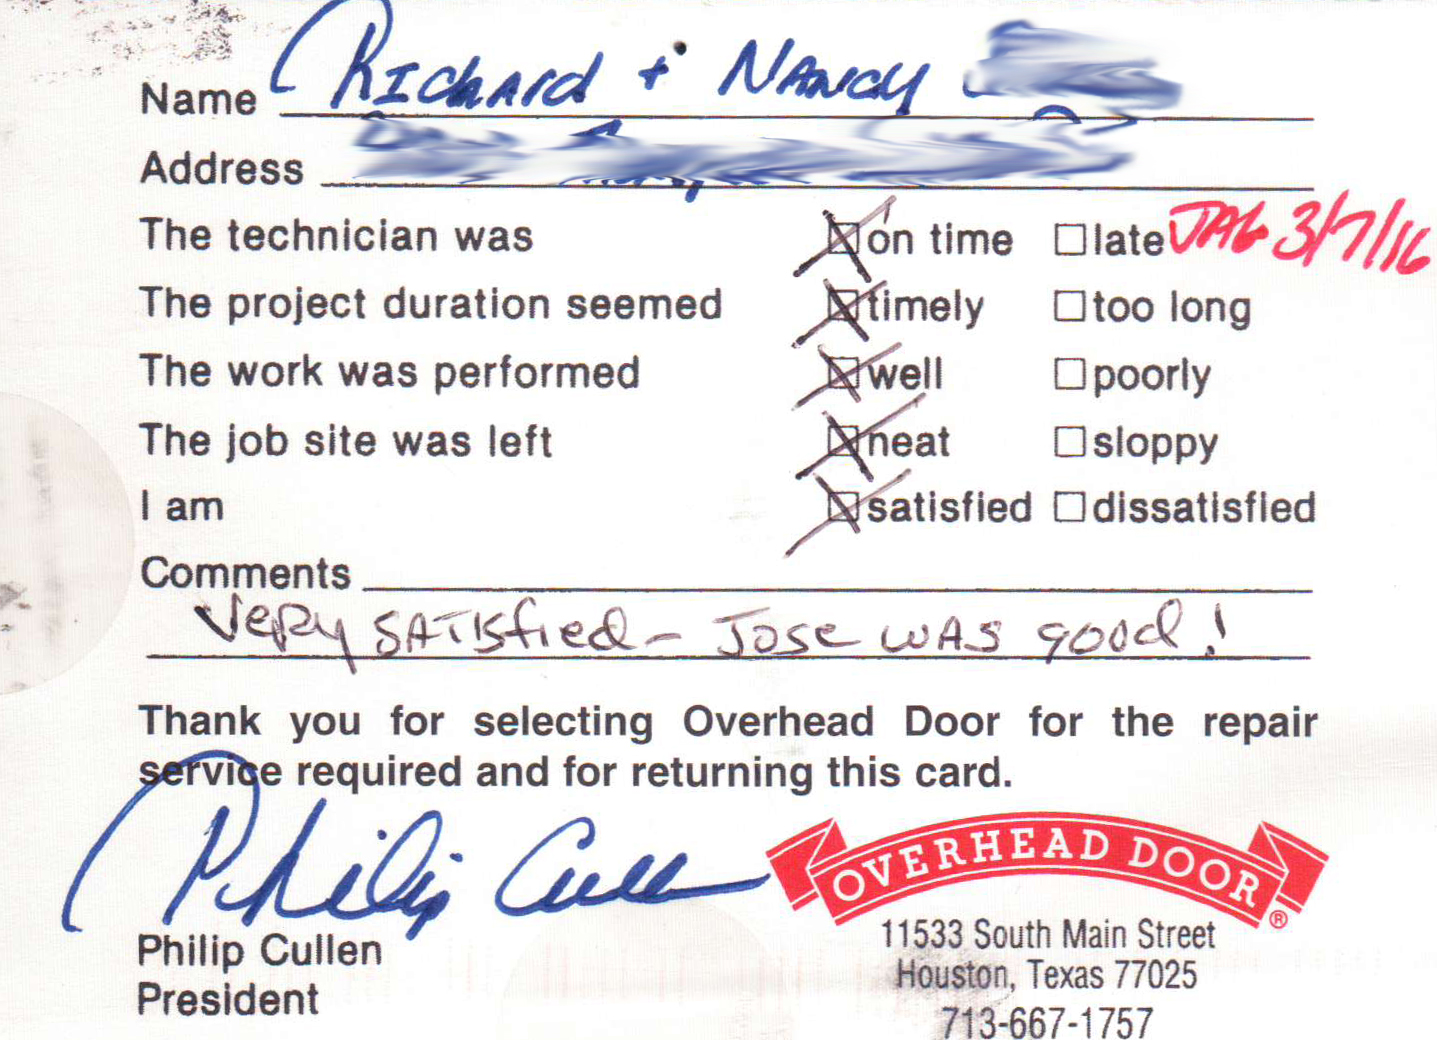 Name RICHARD + NANCY
Address
The technician was ☒ on time ☐ late JAG 3/7/16
The project duration seemed ☒ timely ☐ too long
The work was performed ☒ well ☐ poorly
The job site was left ☒ neat ☐ sloppy
I am ☒ satisfied ☐ dissatisfied
Comments
Very SATISfied - Jose WAS good!
Thank you for selecting Overhead Door for the repair
service required and for returning this card.
Philip Cullen
OVERHEAD DOOR®
Philip Cullen
President
11533 South Main Street
Houston, Texas 77025
713-667-1757